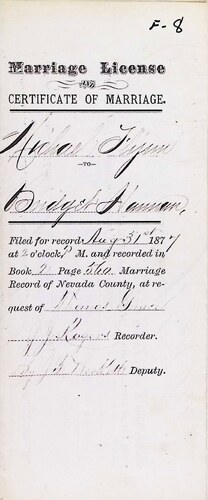 F-8
Marriage License
OR
CERTIFICATE OF MARRIAGE.
Michael Flynn
-TO-
Bridget Hannan,
Filed for record Aug 31st 187
at 2 o'clock, P M. and recorded in
Book 2 Page Marriage
Record of Nevada County, at re-
quest of
Rogers Recorder.
By Deputy.